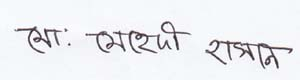 মো: মেহেদী হাসান